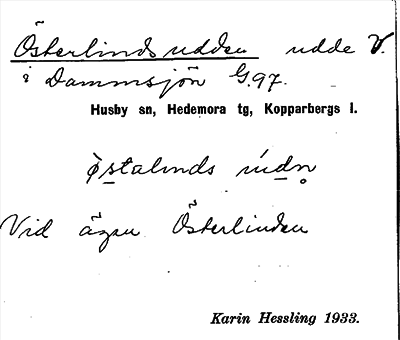 Österlindsudden udde V.
i Dammsjön G.97.
Husby sn, Hedemora tg, Kopparbergs l.
Vid ägen Österlinden
Karin Hessling 1933.